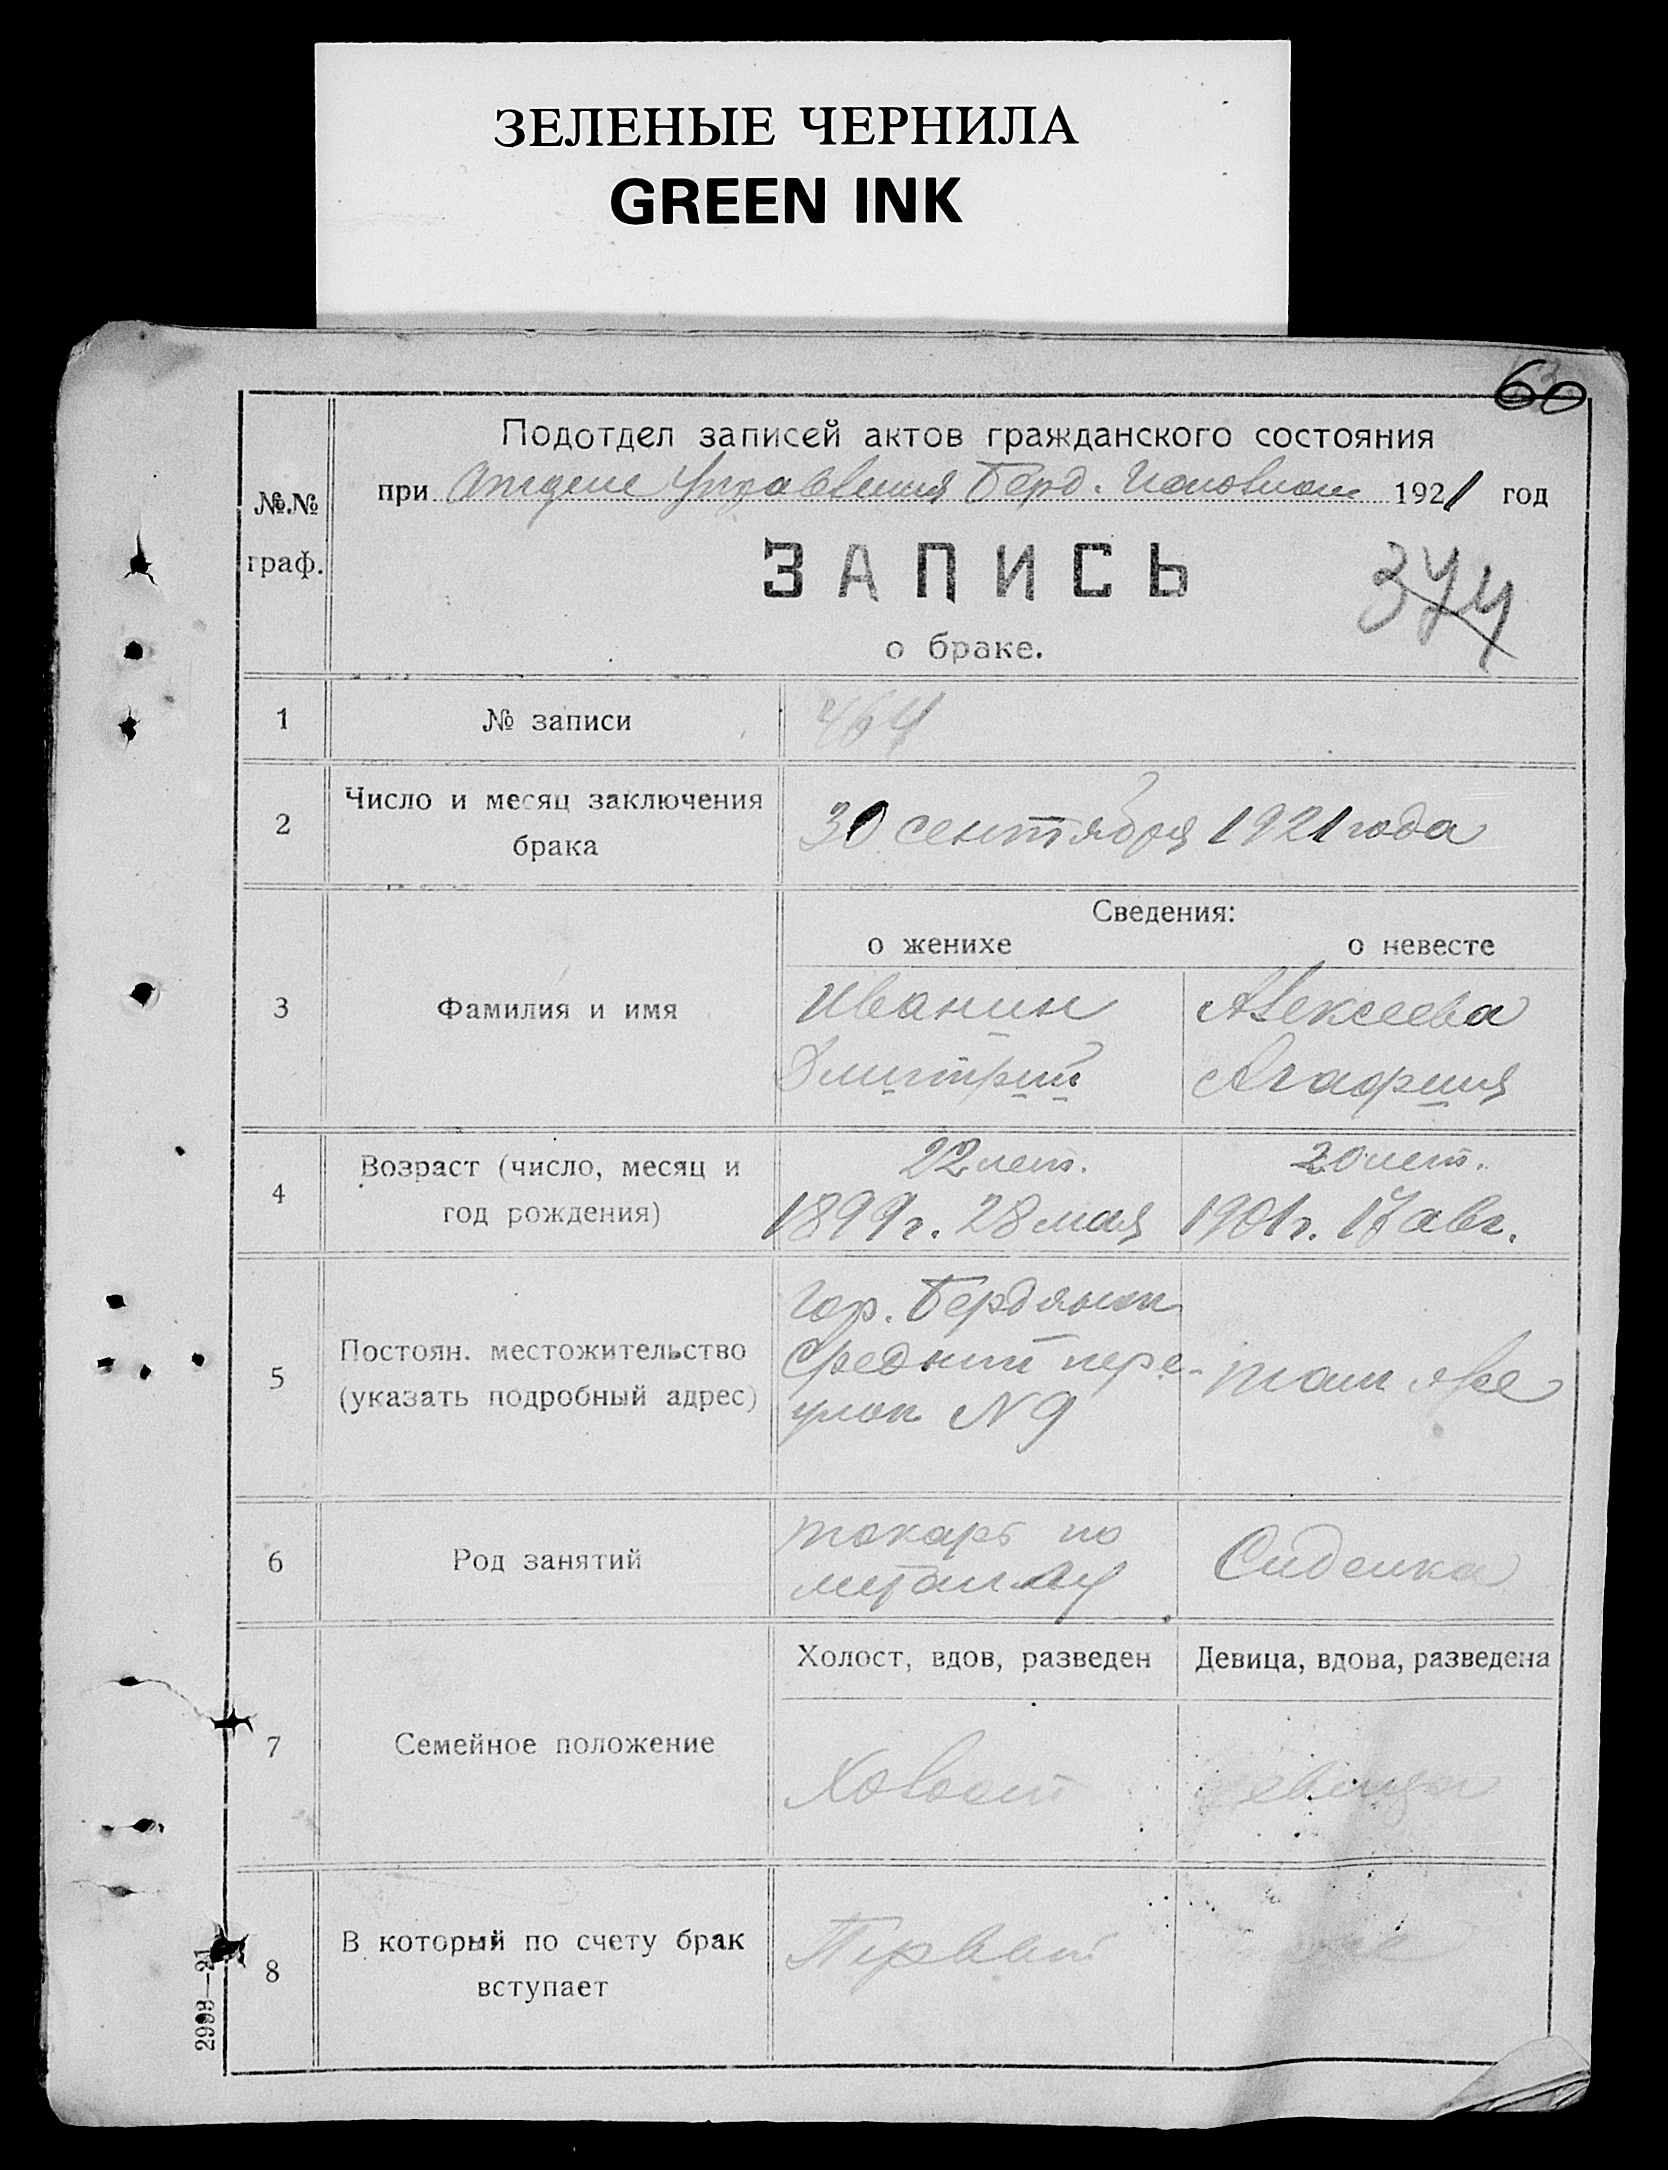 ЗЕЛЕНЫЕ ЧЕРНИЛА
GREEN INK
60
Подотдел записей актов гражданского состояния
при Отделе Управления Берд. Исполком 1921 год
№№
граф.
ЗАПИСЬ
374
о браке.
1 № записи 464
2 Число и месяц заключения
брака
30 сентября 1921 года
Сведения:
о женихе о невесте
3 Фамилия и имя
Иванин Алексеева
Дмитрий Агафия
4 Возраст (число, месяц и
год рождения)
22 лет. 20 лет.
1899 г. 28 мая 1901 г. 17 авг.
5 Постоян. местожительство
(указать подробный адрес)
гор. Бердянск
Средний пере-
улок N 9
там же
6 Род занятий
токарь по
металлу
Сиделка
Холост, вдов, разведен Девица, вдова, разведена
7 Семейное положение
Холост девица
8 В который по счету брак
вступает
Первый
2993—21